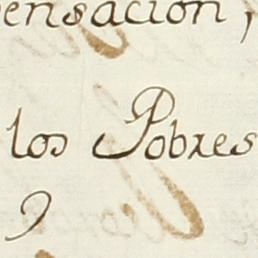 ensacion,
los Pobres